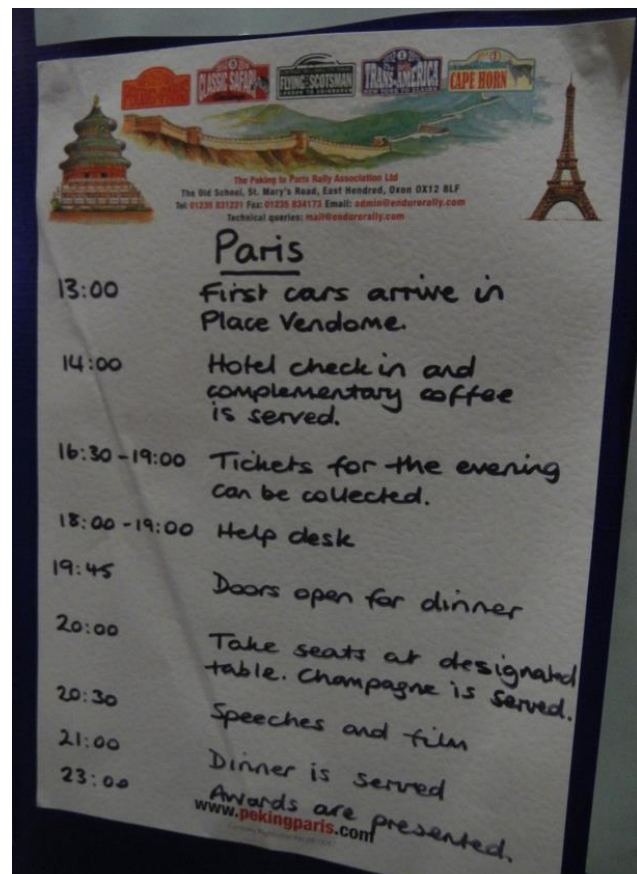 PEKING-PARIS
CLASSIC SAFARI
FLYING SCOTSMAN
TRANS-AMERICA
CAPE HORN
The Peking to Paris Rally Association Ltd
The Old School, St. Mary's Road, East Hendred, Oxon OX12 8LF
Tel: 01235 831221 Fax: 01235 834173 Email: admin@endurorally.com
Technical queries: mail@endurorally.com
Paris
13:00 First cars arrive in
Place Vendome.
14:00 Hotel check in and
complementary coffee
is served.
16:30-19:00 Tickets for the evening
can be collected.
18:00-19:00 Help desk
19:45 Doors open for dinner
20:00 Take seats at designated
table. Champagne is served.
20:30 Speeches and film
21:00 Dinner is served
23:00 Awards are presented.
www.pekingparis.com